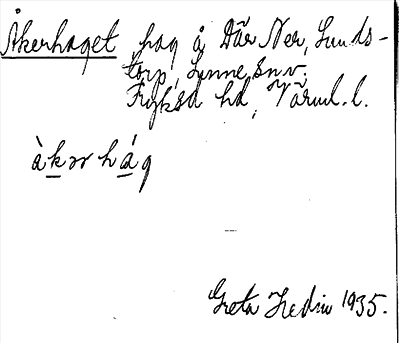 Åkerhaget hag å Där Ner, Lunds-
torp, Sunne sn v.
Fryksd. hd, Värml. l.
àkər hág
Greta Hedin 1935.